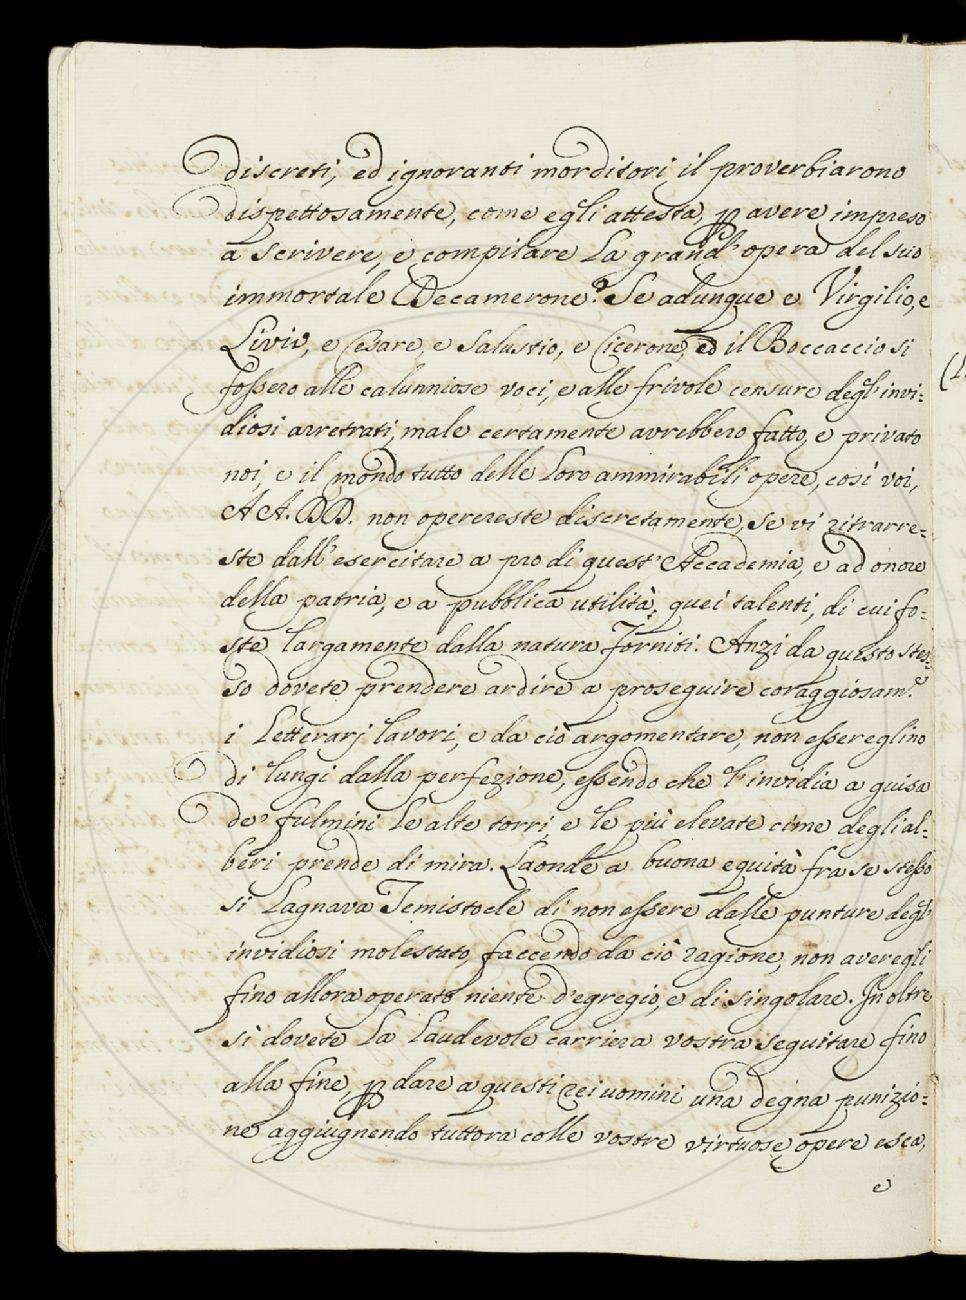 discreti, ed ignoranti morditori il proverbiarono
dispettosamente, come egli attesta, p avere impreso
a scrivere, e compilare la grand' opera del suo
immortale Decamerone? Se adunque e Virgilio, e
Livio, e Cesare, e Salustio, e Cicerone, ed il Boccaccio si
fossero alle calunniose voci, e alle frivole censure degl' invi=
diosi arretrati, male certamente avrebbero fatto, e privato
noi, e il mondo tutto delle loro ammirabili opere, così voi,
AA. DD. non operereste discretamente, se vi ritrarre=
ste dall' esercitare a pro di quest' Accademia, e ad onore
della patria, e a pubblica utilità, quei talenti, di cui fo=
ste largamente dalla natura forniti. Anzi da questo stes=
so dovete prendere ardire a proseguire coraggiosam.e
i Letterarj lavori, e da ciò argomentare, non essere eglino
di lungi dalla perfezione, essendo che l' invidia a guisa
de' fulmini le alte torri, e le più elevate cime degli al=
beri prende di mira. Laonde a buona equità fra se stesso
si lagnava Temistocle di non essere dalle punture degl'
invidiosi molestato, faccendo da ciò ragione, non avere gli
fino allora operato niente d'egregio, e di singolare. Inoltre
sì dovete la laudevole carriera vostra seguitare fino
alla fine, p dare a questi rei uomini una degna punizio=
ne aggiugnendo tuttora colle vostre virtuose opere esca,
e
(L